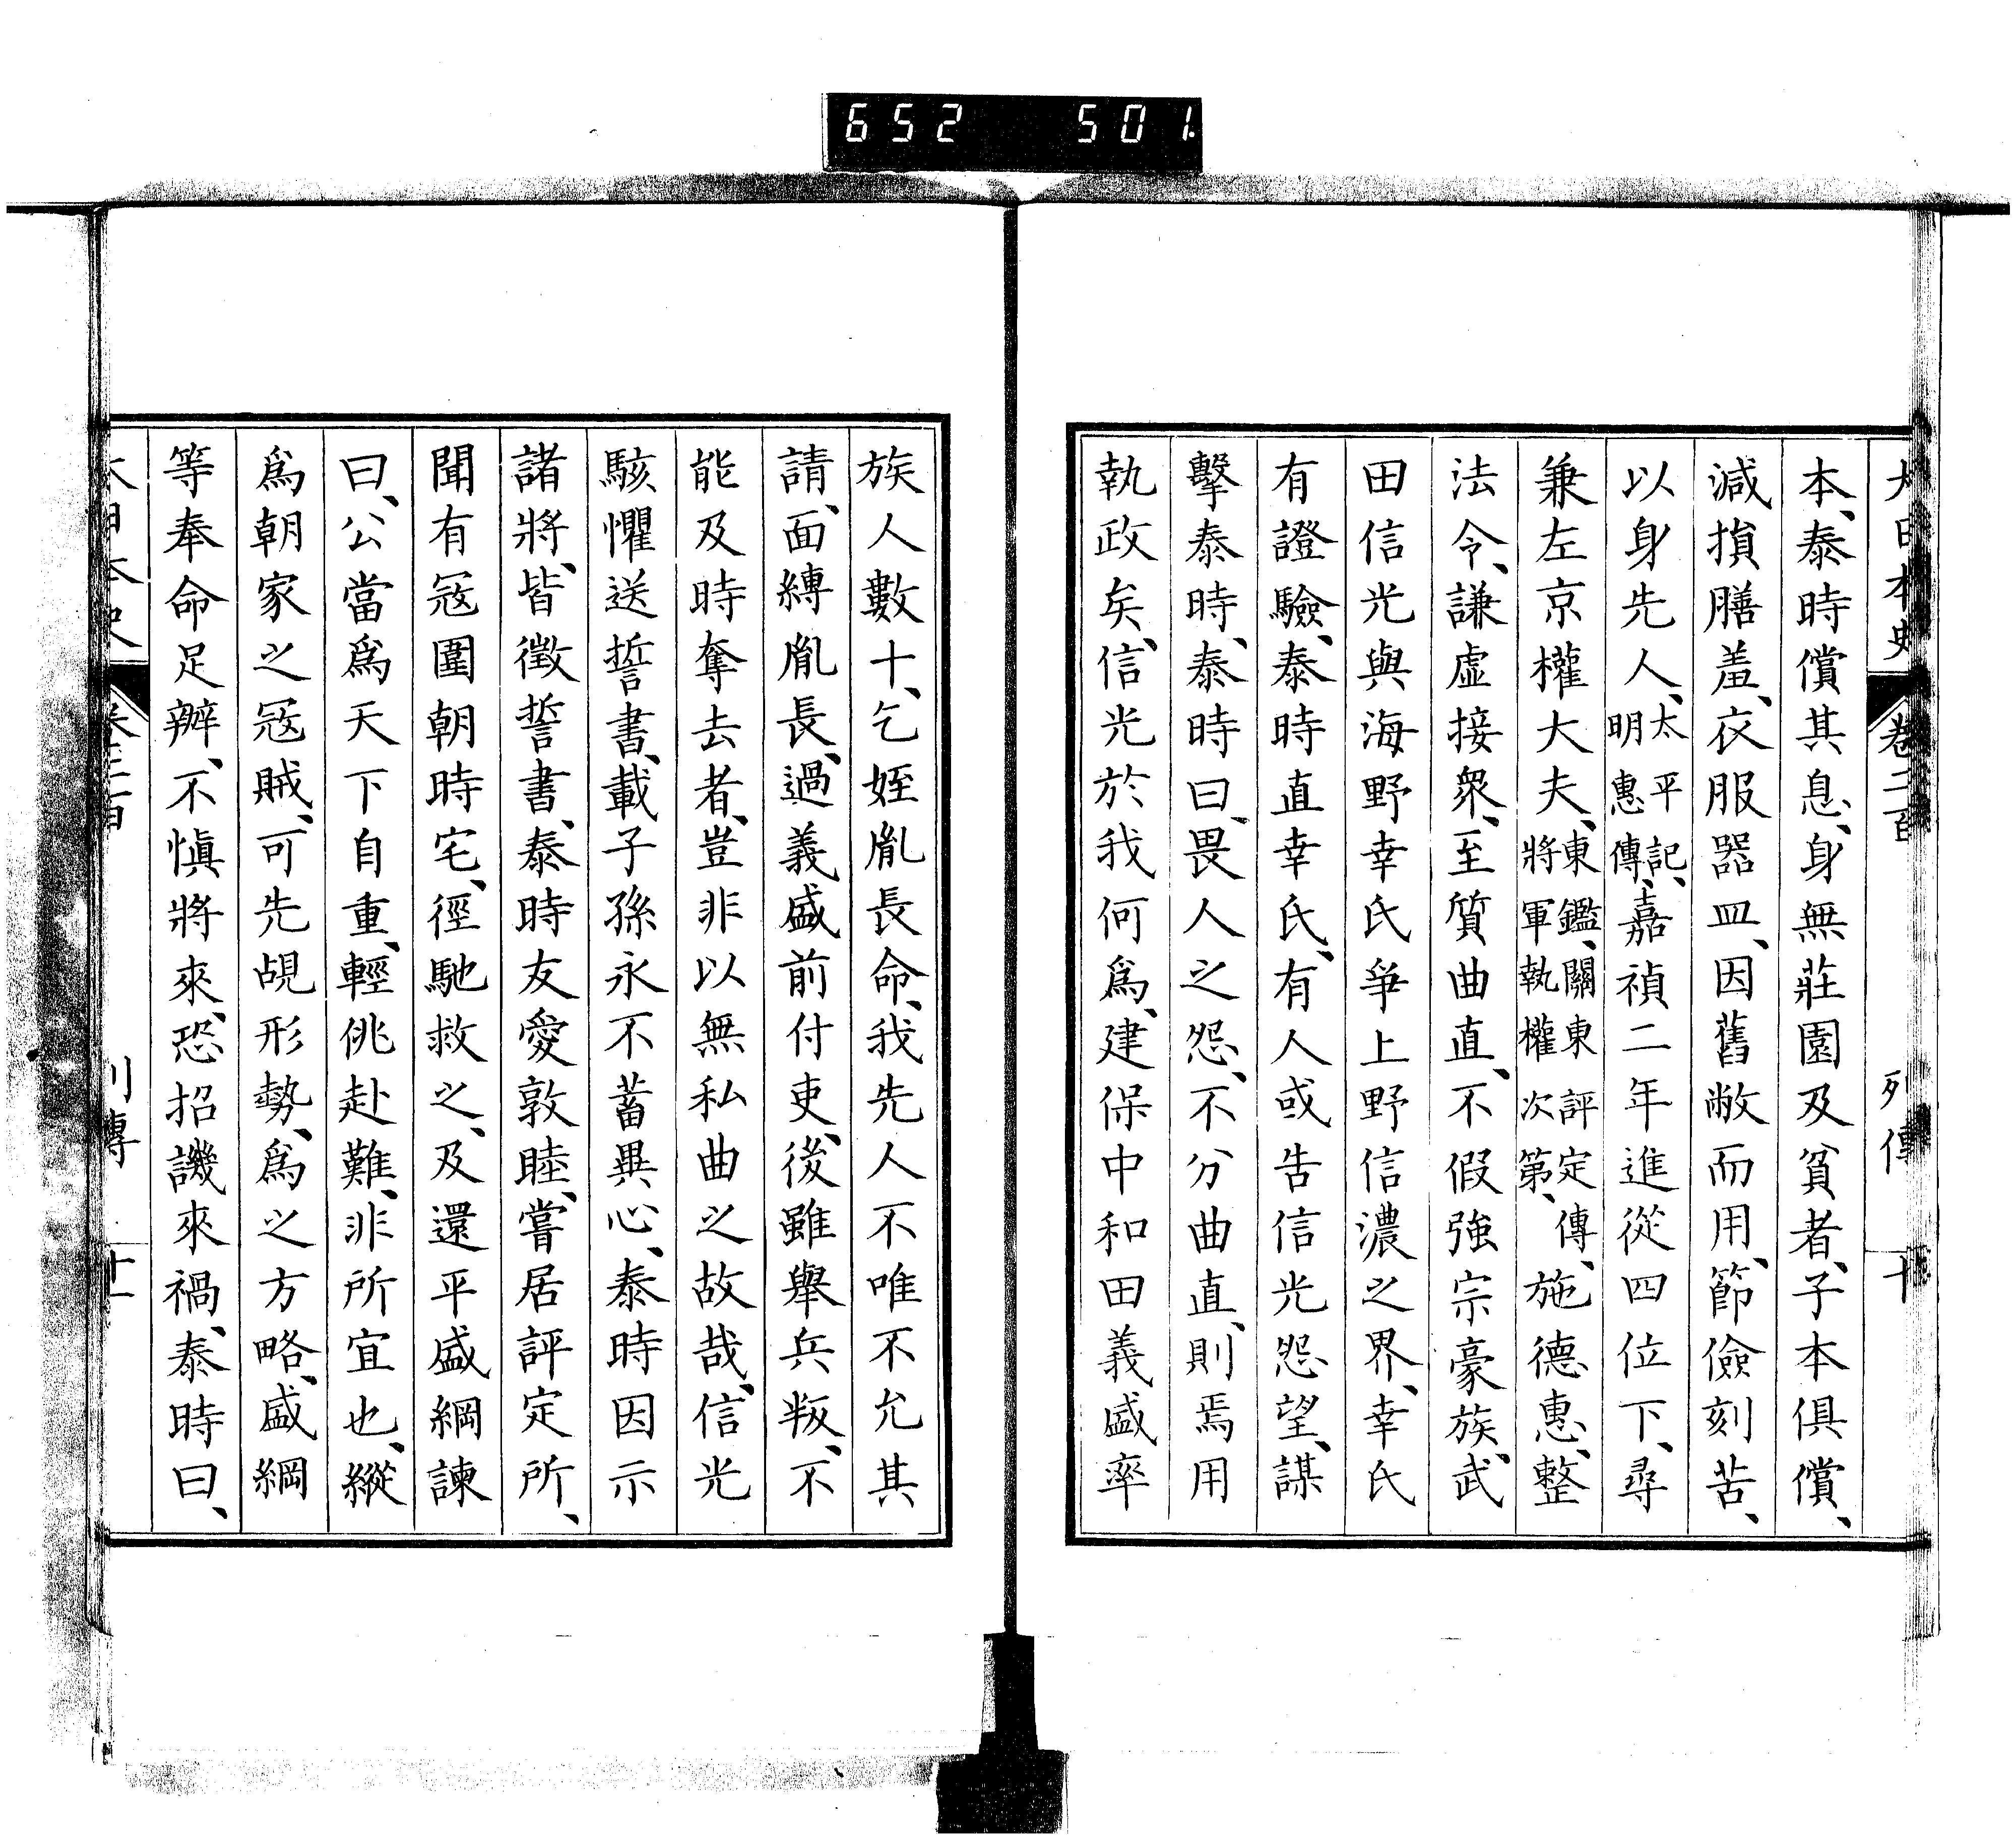 652 501
大日本史 卷二百 列傳 十
本、泰時償其息、身無莊園及貧者、子本俱償、
減損膳羞、衣服器皿、因舊敝而用、節儉刻苦、
以身先人、太平記、明惠傳、嘉禎二年進從四位下、尋
兼左京權大夫、東鑑、關東評定傳、將軍執權次第、施德惠、整
法令、謙虛接衆、至質曲直、不假強宗豪族、武
田信光與海野幸氏爭上野信濃之界、幸氏
有證驗、泰時直幸氏、有人或告信光怨望、謀
擊泰時、泰時曰、畏人之怨、不分曲直、則焉用
執政矣、信光於我何爲、建保中和田義盛率
族人數十、乞姪胤長命、我先人不唯不允其
請、面縛胤長、過義盛前付吏、後雖舉兵叛、不
能及時奪去者、豈非以無私曲之故哉、信光
駭懼送誓書、載子孫永不蓄異心、泰時因示
諸將、皆徵誓書、泰時友愛敦睦、嘗居評定所、
聞有寇圍朝時宅、徑馳救之、及還平盛綱諫
曰、公當爲天下自重、輕佻赴難、非所宜也、縱
爲朝家之寇賊、可先覘形勢、爲之方略、盛綱
等奉命足辨、不愼將來、恐招譏來禍、泰時曰、
大日本史 卷二百 列傳 十一